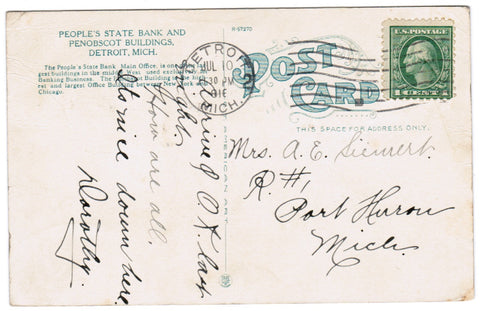 PEOPLE'S STATE BANK AND
PENOBSCOT BUILDINGS,
DETROIT, MICH.
The People's State Bank Main Office, is one of the
largest buildings in the middle West used exclusively for
Banking Business. The
est and largest Office Building between New York and
Chicago.
R-57270
DETROIT
JUL 10
30 PM
MICH.
POST
CARD
U.S. POSTAGE
1 CENTS 1
THIS SPACE FOR ADDRESS ONLY.
Mrs. A. E.
R. #1,
Port Huron
Mich.
Arrived O.K. last
night.
How are all.
It's nice down here
Dorothy.